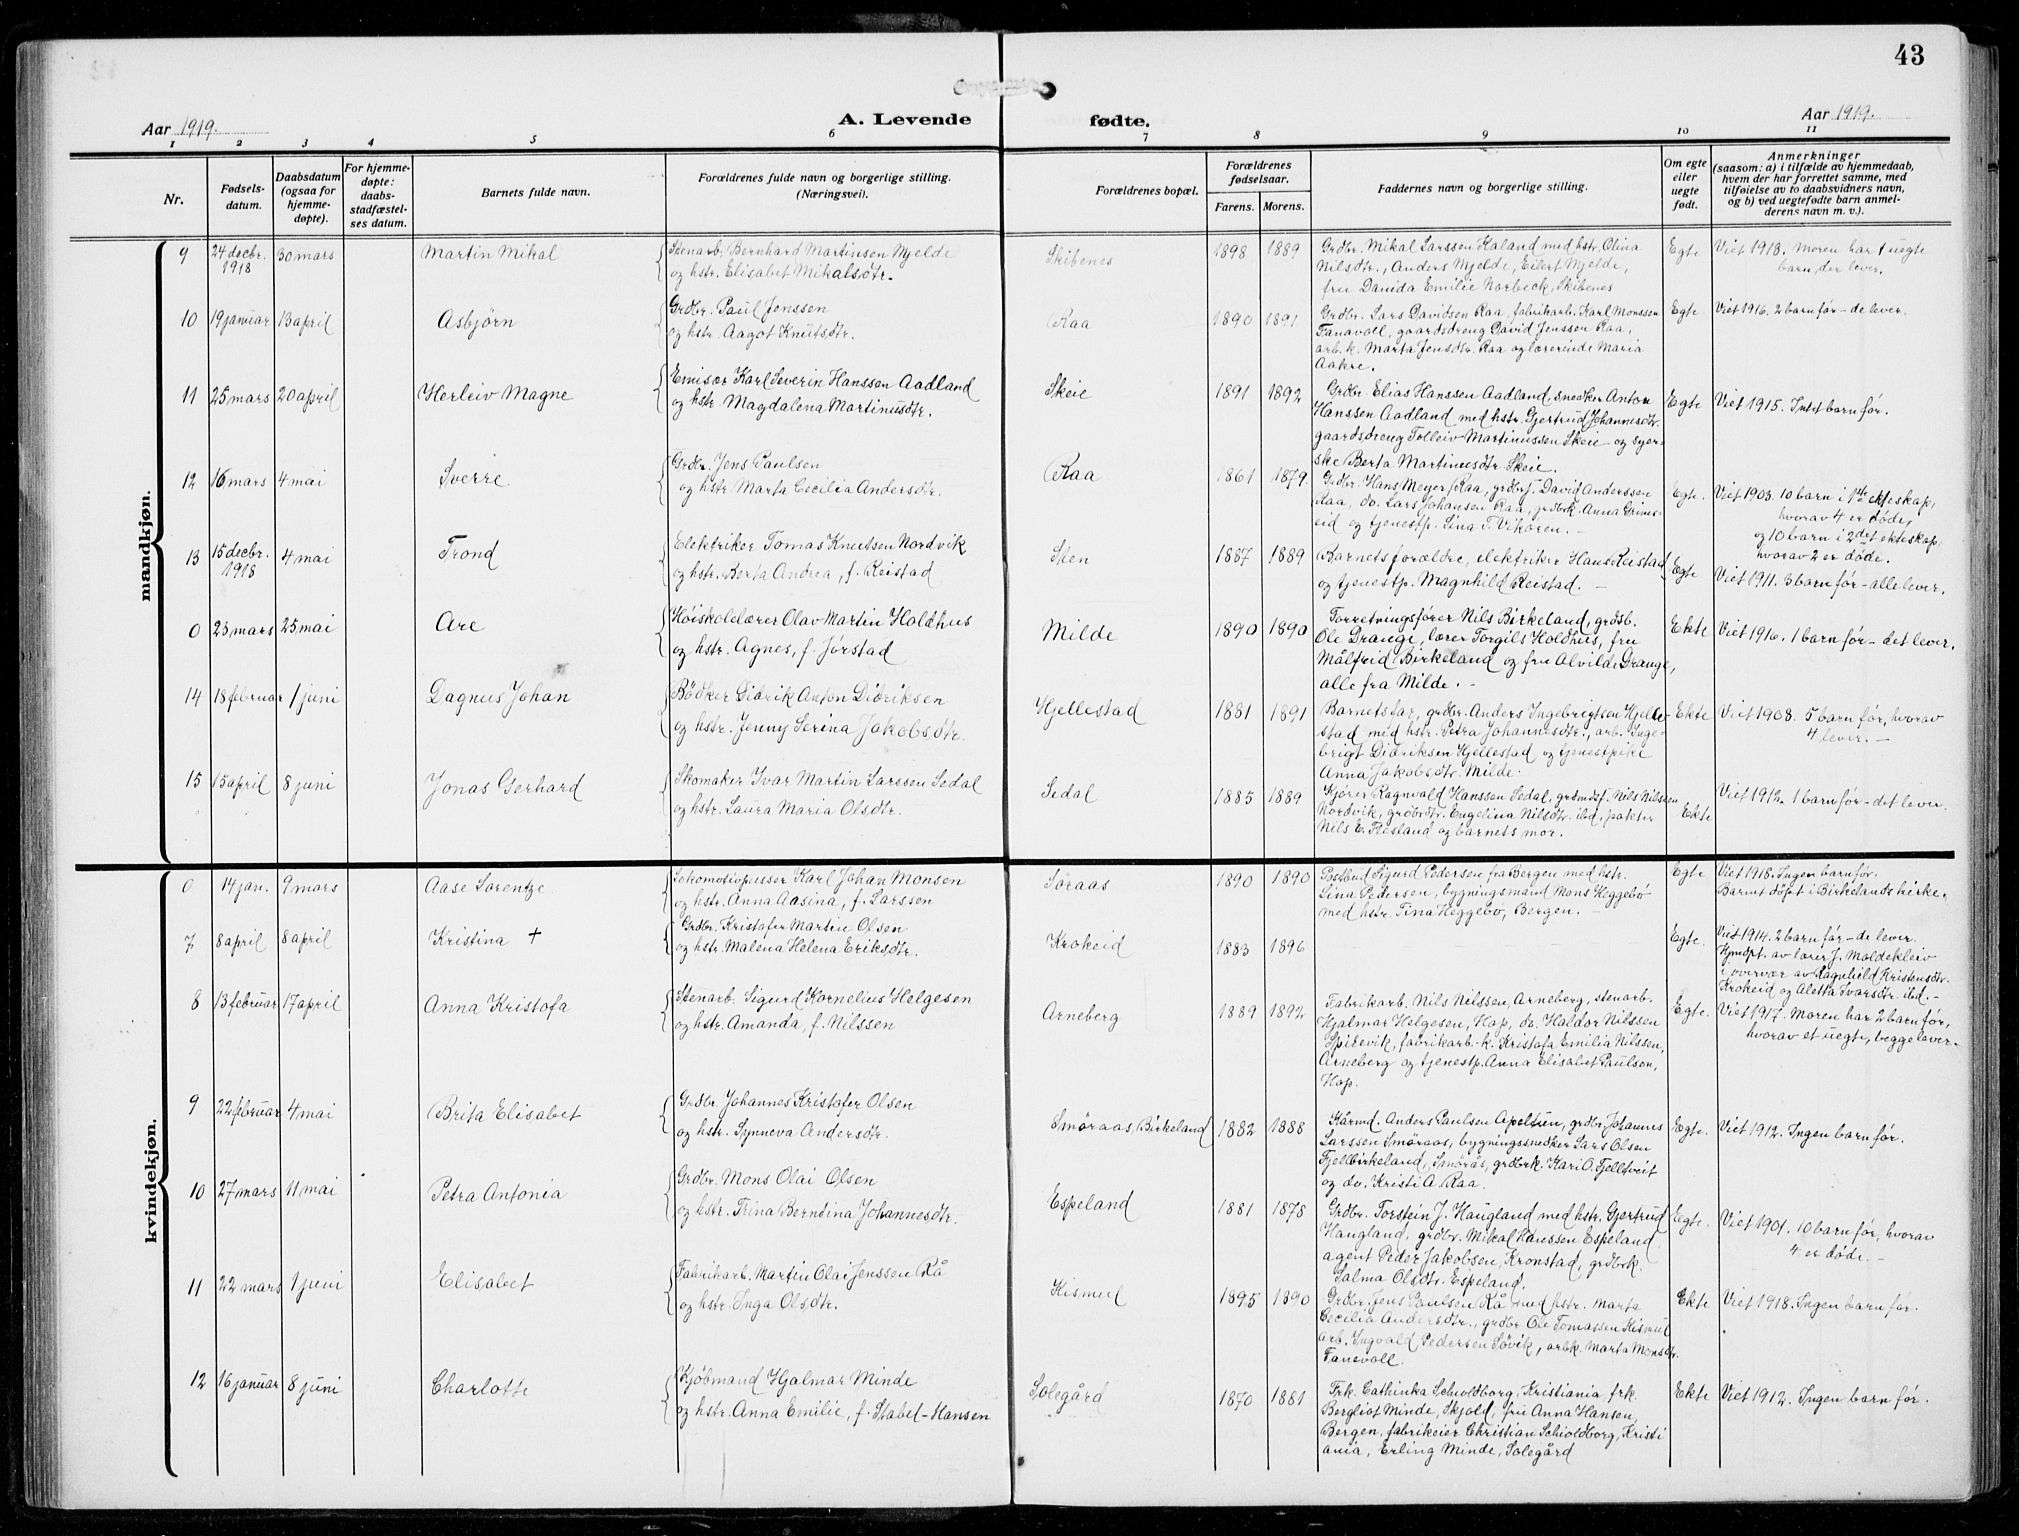 43
Aar 1919.
A. Levende
fødte.
Aar 1919.
1 2 3 4 5 6 7 8 9 10 11
Nr.
Fødsels-
datum.
Daabsdatum
(ogsaa for
hjemme-
døpte).
For hjemme-
døpte:
daabs-
stadfæstel-
ses datum.
Barnets fulde navn.
Forældrenes fulde navn og borgerlige stilling.
(Næringsvei).
Forældrenes bopæl.
Forældrenes
fødselsaar.
Farens. Morens.
Faddernes navn og borgerlige stilling.
Om egte
eller
uegte
født.
Anmerkninger
(saasom: a) i tilfælde av hjemmedaab,
hvem der har forrettet samme, med
tilføielse av to daabsvidners navn,
og b) ved uegtefødte barn anmel-
derens navn m. v.).
mandkjøn.
9 24 decbr. 1918 30 mars Martin Mikal
Stenarb. Bernhard Martinsen Mjelde
og hstr. Elisabet Mikalsdtr.
Skibenes 1898 1889
Grdbr. Mikal Larssen Kaland med hstr. Olina
Nilsdtr., Anders Mjelde, Eilert Mjelde,
fru Davida Emilie Norbeck, Skibenes
Egte
Viet 1918. Moren har 1 uegte
barn, der lever.
10 19 januar 13 april Asbjørn
Grdbr. Paul Jenssen
og hstr. Aagot Knutsdtr.
Raa 1890 1891
Grdbr. Lars Davidsen Raa, fabrikarb. Karl Monssen
Fanavoll, gaardsdreng David Jenssen Raa,
arb.k. Marta Jensdtr. Raa og lærerinde Maria
Aakre.
Egte
Viet 1916. 2 barn før - de lever.
11 25 mars 20 april Herleiv Magne
Emisær Karl Severin Hanssen Aadland
og hstr. Magdalena Martinusdtr.
Skeie 1891 1892
Grdbr. Elias Hanssen Aadland, snedker Anton
Hanssen Aadland med hstr. Gjertrud Johannesdtr.
gaardsdreng Tolleiv Martinussen Skeie og syer-
ske Berta Martinusdtr. Skeie.
Egte
Viet 1915. Intet barn før.
12 16 mars 4 mai Sverre
Grdbr. Jens Paulsen
og hstr. Marta Cecilia Andersdtr.
Raa 1861 1879
Grdbr. Hans Meyer Raa, grdbrf. David Anderssen
Raa, do. Lars Johansen Raa, grdbrk. Anna Grims-
eid og tjenestp. Lina T. Vikøren. -
Egte.
Viet 1903. 10 barn i 1ste ekteskap,
hvorav 4 er døde,
og 10 barn i 2det ekteskap,
hvorav 2 er døde.
13 15 decbr. 1918 4 mai Trond
Elektriker Tomas Knutsen Nordvik
og hstr. Berta Andrea, f. Reistad
Sten 1887 1889
Barnets forældre, elektriker Hans Reistad
og tjenestp. Magnhild Reistad. -
Egte
Viet 1911. 3 barn før - alle lever.
0 23 mars 25 mai Are
Høiskolelærer Olav Martin Holdhus
og hstr. Agnes, f. Jørstad
Milde 1890 1890
Forretningsfører Nils Birkeland, grdsb.
Ole Drange, lærer Torgils Holdhus, fru
Målfrid Birkeland og fru Alvilde Drange,
alle fra Milde. -
Ekte
Viet 1916. 1 barn før - det lever.
14 18 februar 1 juni Dagnus Johan
Bødker Didrik Anton Didriksen
og hstr. Jenny Serina Jakobsdtr.
Hjellestad 1881 1891
Barnets far, grdbr. Anders Ingebrigtsen Hjelle-
stad med hstr. Petra Johannesdtr., arb. Inge-
brigt Didriksen Hjellestad og tjenestpike
Anna Jakobsdtr. Milde.
Ekte
Viet 1908. 5 barn før, hvorav
4 lever. -
15 15 april 8 juni Jonas Gerhard
Skomaker Ivar Martin Larssen Sedal
og hstr. Laura Maria Olsdtr.
Sedal 1885 1889
Kjører Ragnvald Hanssen Sedal, grdmdsf. Nils Nilssen
Nordvik, grdbrdtr. Engelina Nilsdtr. ibd., pakter
Nils E. Risland og barnets mor.
Ekte
Viet 1912. 1 barn før - det lever.
kvindekjøn.
0 14 jan. 9 mars Aase Lorentze
Lokomotivpusser Karl Johan Monsen
og hstr. Anna Aasina, f. Larssen
Søraas 1890 1890
Postbud Sigurd Pedersen fra Bergen med hstr.
Lina Pedersen, bygningsmand Mons Heggebø
med hstr. Tina Heggebø, Bergen. -
Egte
Viet 1918. Ingen barn før.
Barnet døpt i Birkelands kirke.
7 8 april 8 april Kristina +
Grdbr. Kristofer Martin Olsen
og hstr. Malena Helena Eriksdtr.
Krokeid 1883 1896
Egte.
Viet 1914. 2 barn før - de lever.
Hjmdpt. av lærer J. Moldekleiv
i overvær av Ragnhild Kristensdtr.
Krokeid og Aletta Ivarsdtr. ibd. -
8 13 februar 17 april Anna Kristofa
Stenarb. Sigurd Kornelius Helgesen
og hstr. Amanda, f. Nilssen
Arneberg 1889 1892
Fabrikarb. Nils Nilssen, Arneberg, stenarb.
Hjalmar Helgesen, Hop, do. Haldor Nilssen
Spilevik, fabrikarb.-k. Kristofa Emilia Nilssen,
Arneberg og tjenestp. Anna Elisabet Paulson,
Hop.
Egte.
Viet 1917. Moren har 2 barn før,
hvorav et uegte, begge lever.
9 22 februar 4 mai Brita Elisabet
Grdbr. Johannes Kristofer Olsen
og hstr. Synneva Andersdtr.
Smøraas, Birkeland 1882 1888
Kårmd. Anders Paulsen Apeltun, grdbr. Johannes
Larssen Smøraas, bygningssnedker Lars Olsen
Fjellbirkeland, Smørås, grdbrk. Kari O. Fjelltveit
og do. Kristi A. Raa.
Egte.
Viet 1912. Ingen barn før.
10 27 mars 11 mai Petra Antonia
Grdbr. Mons Olai Olsen
og hstr. Trina Berntina Johannesdtr.
Espeland 1881 1878
Grdbr. Torstein J. Haugland med hstr. Gjertrud
Haugland, grdbr. Mikal Hanssen Espeland
agent Peder Jakobsen, Kronstad, grdbrk.
Salma Olsdtr. Espeland.
Egte.
Viet 1901. 10 barn før, hvorav
4 er døde. -
11 22 mars 1 juni Elisabet
Fabrikarb. Martin Olai Jenssen Rå
og hstr. Inga Olsdtr.
Kismul 1895 1890
Grdbr. Jens Paulsen Rå med hstr. Marta
Cecilia Andersdtr., grdbr Ole Tomassen Kismul
arb. Ingvald Pedersen Søvik, arbk. Marta Monsdtr.
Fanevoll.
Ekte
Viet 1918. Ingen barn før.
12 16 januar 8 juni Charlotte
Kjøbmand Hjalmar Minde
og hstr. Anna Emilie, f. Stabel-Hansen
Solegård 1870 1881
Frk. Cathinka Schioldborg, Kristiania, frk.
Bergliot Minde, Skjold, fru Anna Hansen,
Bergen, fabrikeier Christian Schioldborg, Kristi
ania, Erling Minde, Solegård
Ekte
Viet 1912. Ingen barn før.